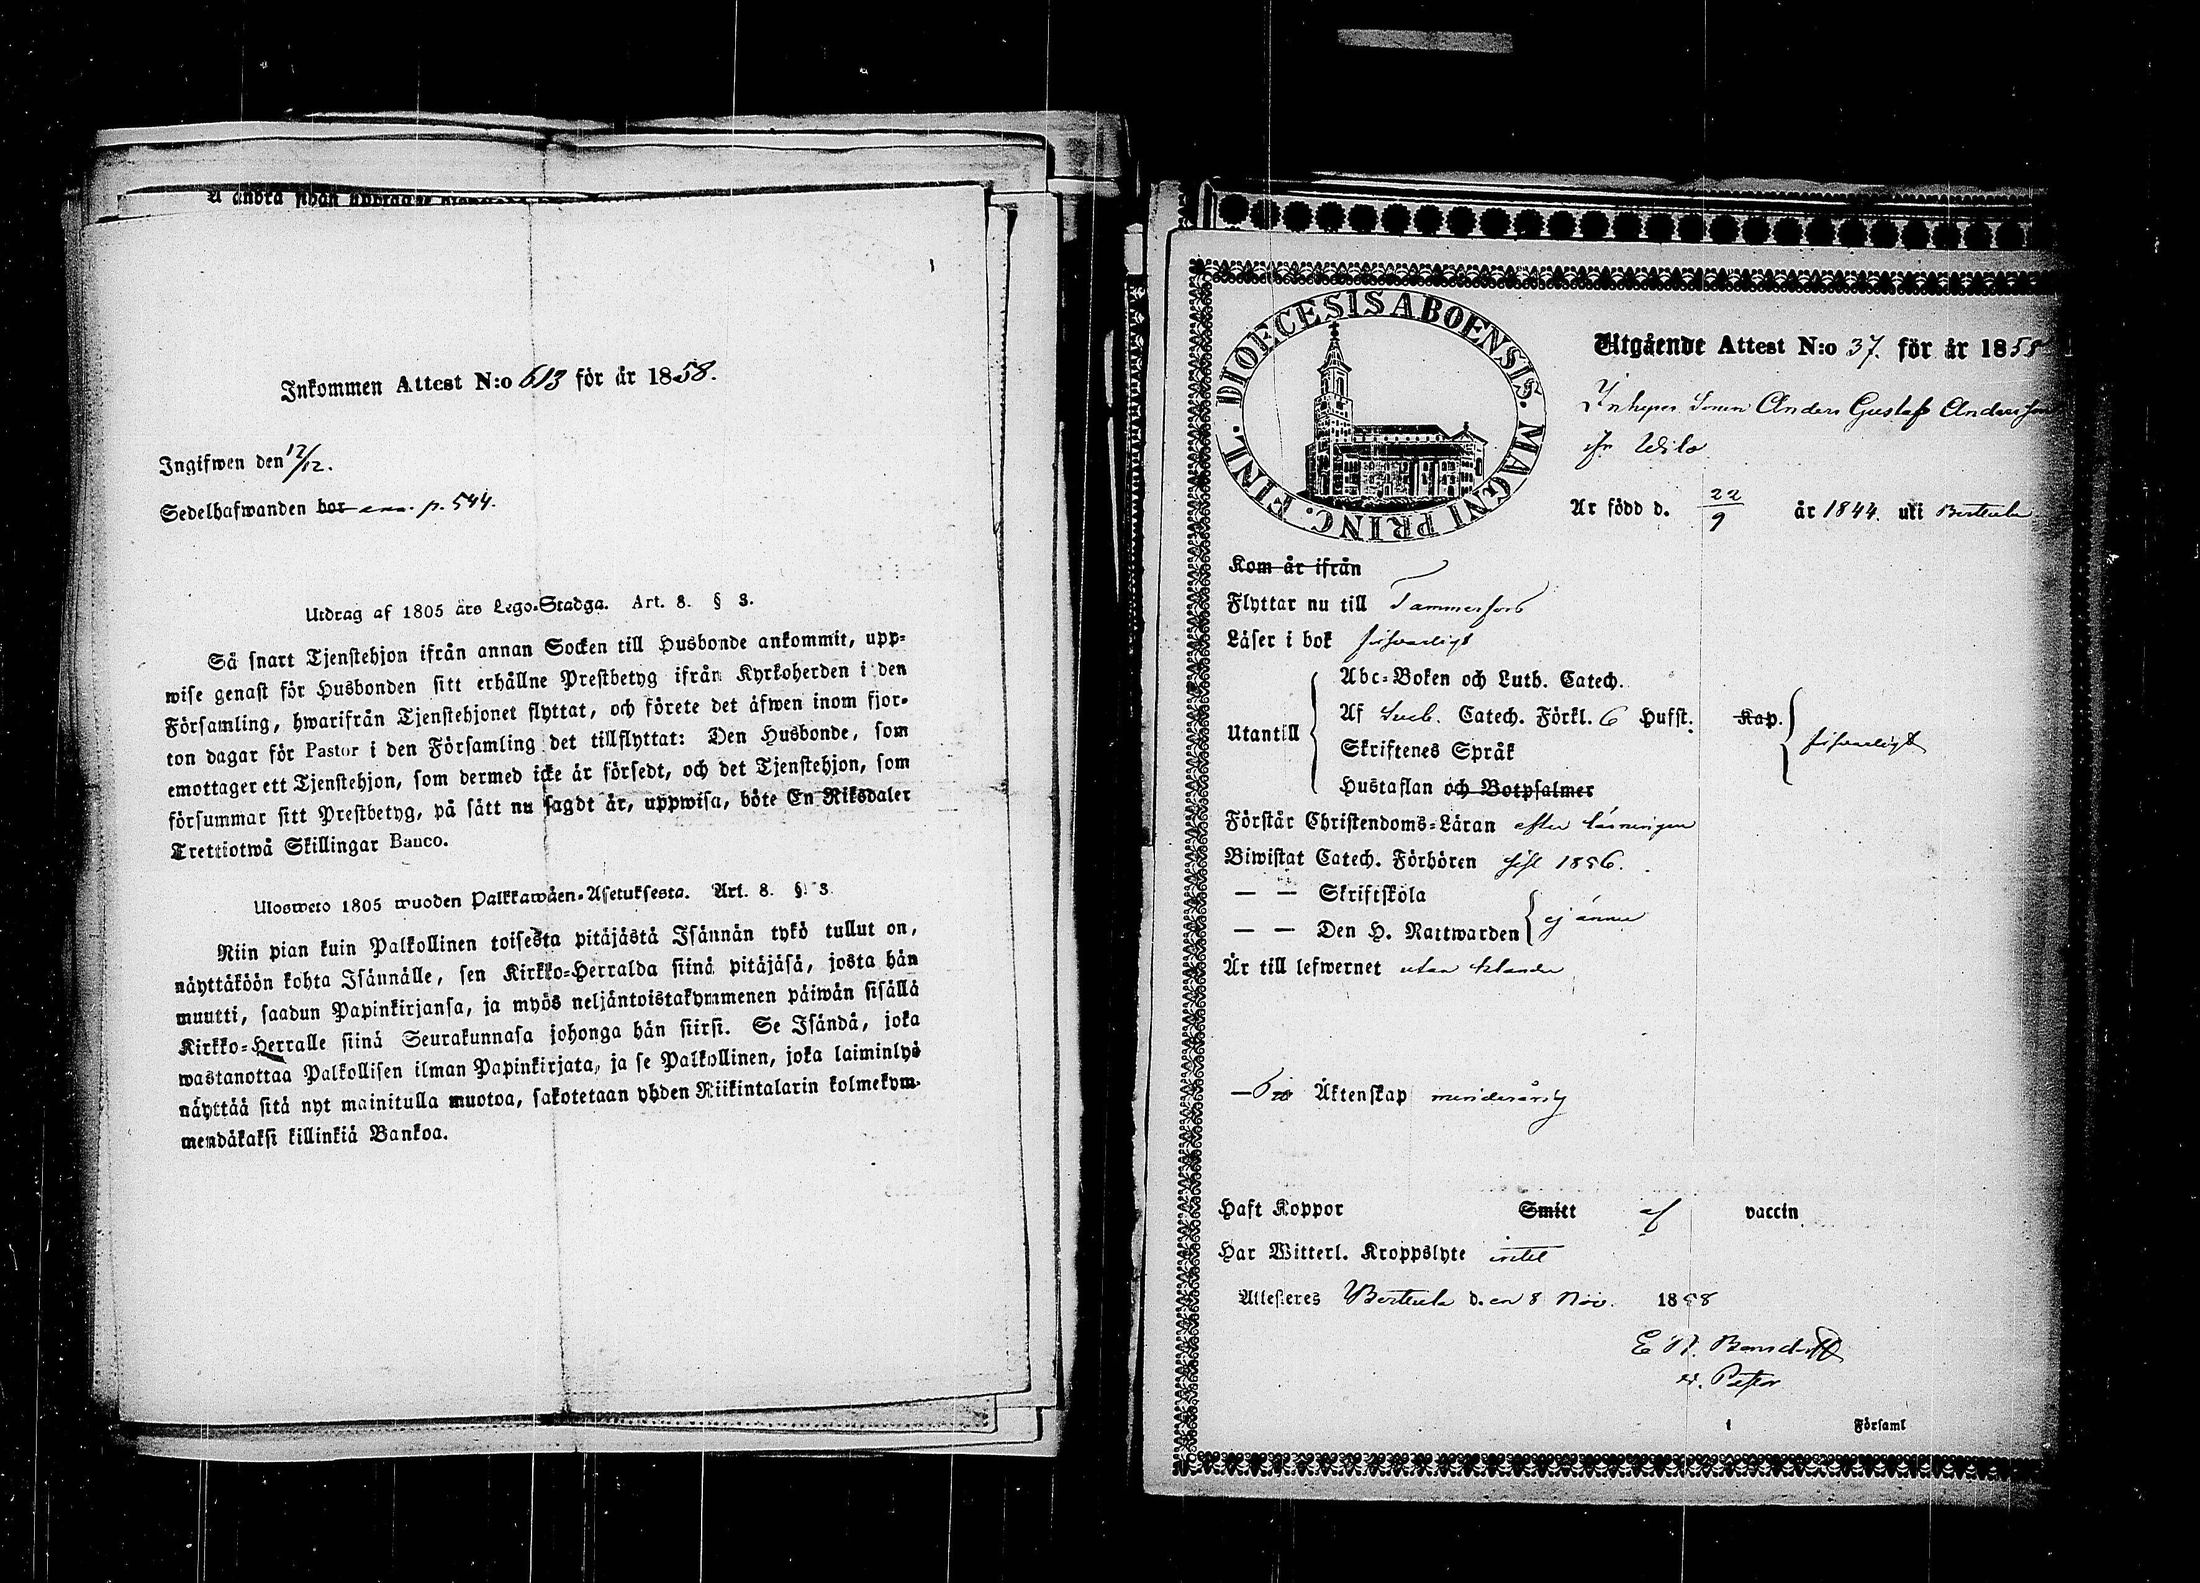 Inkommen Attest N:o 613 för år 1858.
Ingifwen den 12/12.
Sedelhafwanden bor p. 544.
Utdrag af 1805 års Lego-Stadga. Art. 8. § 3.
Så snart Tjenstehjon ifrån annan Socken till Husbonde ankommit, upp-
wise genast för Husbonden sitt erhållne Prestbetyg ifrån Kyrkoherden i den
Församling, hwarifrån Tjenstehjonet flyttat, och förete det äfwen inom fjor-
ton dagar för Pastor i den Församling det tillflyttat: Den Husbonde, som
emottager ett Tjenstehjon, som dermed icke är försedt, och det Tjenstehjon, som
försummar sitt Prestbetyg, på sätt nu sagdt är, uppwisa, böte En Riksdaler
Trettiotwå Skillingar Banco.
Ulosweto 1805 wuoden Palkkawäen-Asetuksesta. Art. 8. § 3.
Niin pian kuin Palkollinen toisesta pitäjästä Isännän tykö tullut on,
näyttäköön kohta Isännälle, sen Kirkko-Herralda siinä pitäjäsä, josta hän
muutti, saadun Papinkirjansa, ja myös neljäntoistakymmenen päiwän sisällä
Kirkko-Herralle siinä Seurakunnasa johonga hän siirsi. Se Isändä, joka
wastanottaa Palkollisen ilman Papinkirjata, ja se Palkollinen, joka laiminlyö
näyttää sitä nyt mainitulla muotoa, sakotetaan yhden Riikintalarin kolmekym-
mendäkaksi killinkiä Bankoa.
DIOECESIS ABOENSIS. MAGNI PRINC. FINL.
Utgående Attest N:o 37. för år 1858
Inhyses Sonen Anders Gustaf Andersson
fr Wilo
Är född d. 22/9 år 1844. uti Vesteula
Kom år ifrån
Flyttar nu till Tammerfors
Läser i bok försvarligt
Utantill
Abc-Boken och Luth. Catech.
Af Sueb. Catech. Förkl. 6 Hufst. Kap.
Skriftenes Språk
Hustaflan och Botpsalmer
försvarligt
Förstår Christendoms-Läran efter läsningen
Biwistat Catech. Förhören sist 1856.
— — Skriftskola
— — Den H. Nattwarden
ej ännu
Är till lefwernet utan klander
— Äktenskap minderårig
Haft Koppor Smitt af vaccin
Har Witterl. Kroppslyte intet
Attesteres d. en 8 Nov. 1858
v. Pastor
i Församl